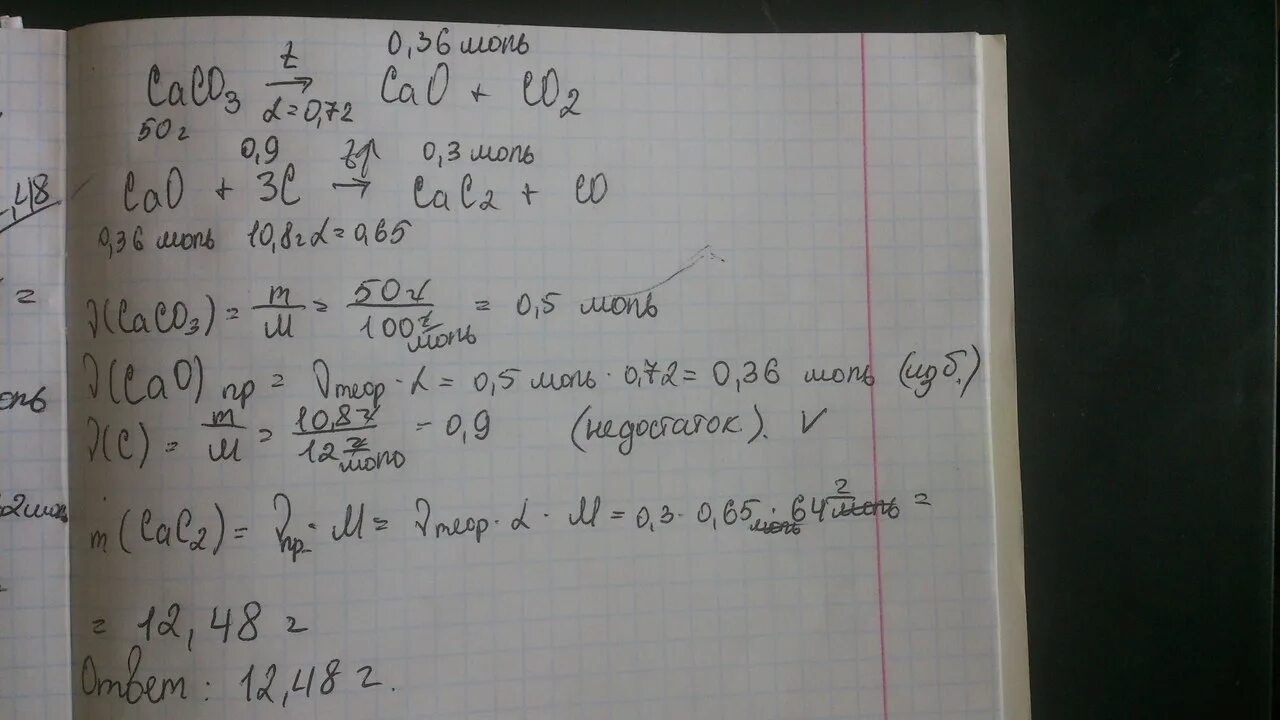 0,36 моль
CaCO3 →t α=0,72 CaO + CO2
50 г
0,9 0,3 моль
CaO + 3C →t↑ CaC2 + CO
0,36 моль 10,8 г α=0,65
,48
=
ν(CaCO3) = m/M = 50 г/100 г/моль = 0,5 моль
ν(CaO) пр = νтеор · α = 0,5 моль · 0,72 = 0,36 моль (изб.)
ν(C) = m/M = 10,8 г/12 г/моль = 0,9 (недостаток). V
m(CaC2) = νпр · M = νтеор · α · M = 0,3 · 0,65 моль · 64 г/моль =
= 12,48 г
Ответ: 12,48 г.